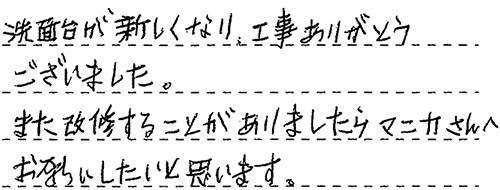 洗面台が新しくなり、工事ありがとう
ございました。
また改修することがありましたらマニカさんへ
お願いしたいと思います。